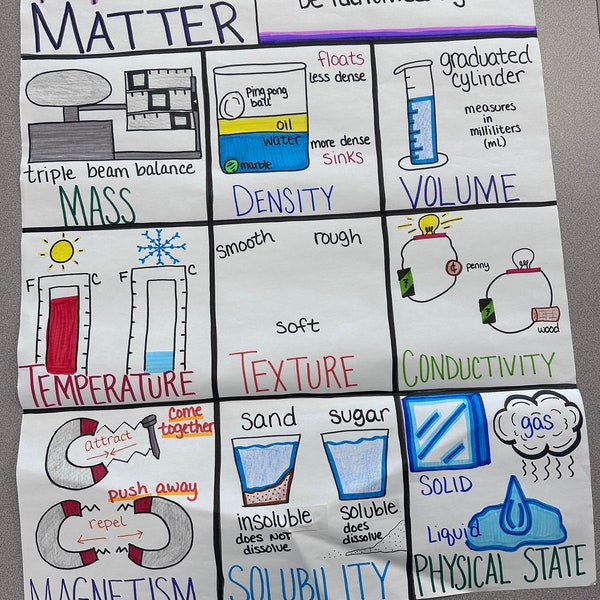 MATTER
triple beam balance
MASS
floats
less dense
Ping pong
ball
oil
water
more dense
sinks
marble
DENSITY
graduated
cylinder
measures
in
milliliters
(mL)
VOLUME
F C
F C
TEMPERATURE
smooth rough
soft
TEXTURE
penny
wood
CONDUCTIVITY
attract
come
together
push away
repel
MAGNETISM
sand sugar
insoluble
does NOT
dissolve
soluble
does
dissolve
SOLUBILITY
SOLID
gas
Liquid
PHYSICAL STATE